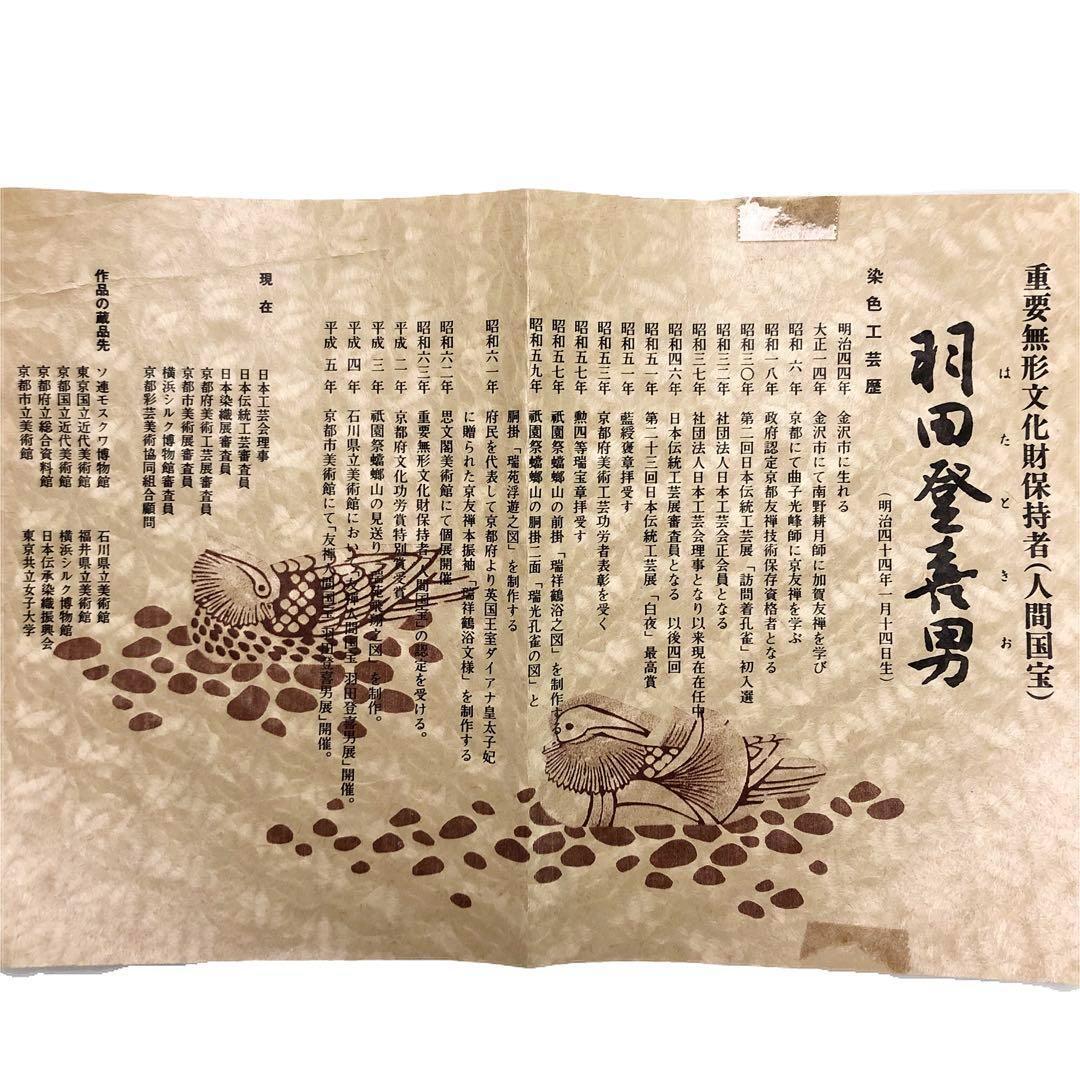 重要無形文化財保持者(人間国宝)
はたときお
羽田登喜男
(明治四十四年一月十四日生)
染色工芸歴
明治四四年 金沢市に生れる
大正一四年 金沢市にて南野耕月師に加賀友禅を学び
昭和六年 京都にて曲子光峰師に京友禅を学ぶ
昭和一八年 政府認定京都友禅技術保存資格者となる
昭和三〇年 第二回日本伝統工芸展「訪問着孔雀」初入選
昭和三二年 社団法人日本工芸会正会員となる
昭和三七年 社団法人日本工芸会理事となり以来現在在任中
昭和四六年 日本伝統工芸展審査員となる 以後四回
昭和五一年 第二十三回日本伝統工芸展「白夜」最高賞
昭和五一年 藍綬褒章拝受す
昭和五三年 京都府美術工芸功労者表彰を受く
昭和五七年 勲四等瑞宝章拝受す
昭和五七年 祇園祭蟷螂山の前掛「瑞祥鶴浴之図」を制作する
昭和五九年 祇園祭蟷螂山の胴掛二面「瑞光孔雀の図」と
胴掛「瑞苑浮遊之図」を制作する
昭和六一年 府民を代表して京都府より英国王室ダイアナ皇太子妃
に贈られた京友禅本振袖「瑞祥鶴浴文様」を制作する
昭和六二年 思文閣美術館にて個展開催
昭和六三年 重要無形文化財保持者(人間国宝)の認定を受ける。
平成二年 京都府文化功労賞特別賞受賞
平成三年 祇園祭蟷螂山の見送り「瑞苑飛翔之図」を制作。
平成四年 石川県立美術館において「友禅人間国宝 羽田登喜男展」開催。
平成五年 京都市美術館にて「友禅人間国宝 羽田登喜男展」開催。
現在
日本工芸会理事
日本伝統工芸審査員
日本染織展審査員
京都府美術工芸展審査員
京都市美術展審査員
横浜シルク博物館審査員
京都彩芸美術協同組合顧問
作品の蔵品先
ソ連モスクワ博物館
東京国立近代美術館
京都国立近代美術館
京都府立総合資料館
京都市立美術館
石川県立美術館
福井県立美術館
横浜シルク博物館
日本伝承染織振興会
東京共立女子大学